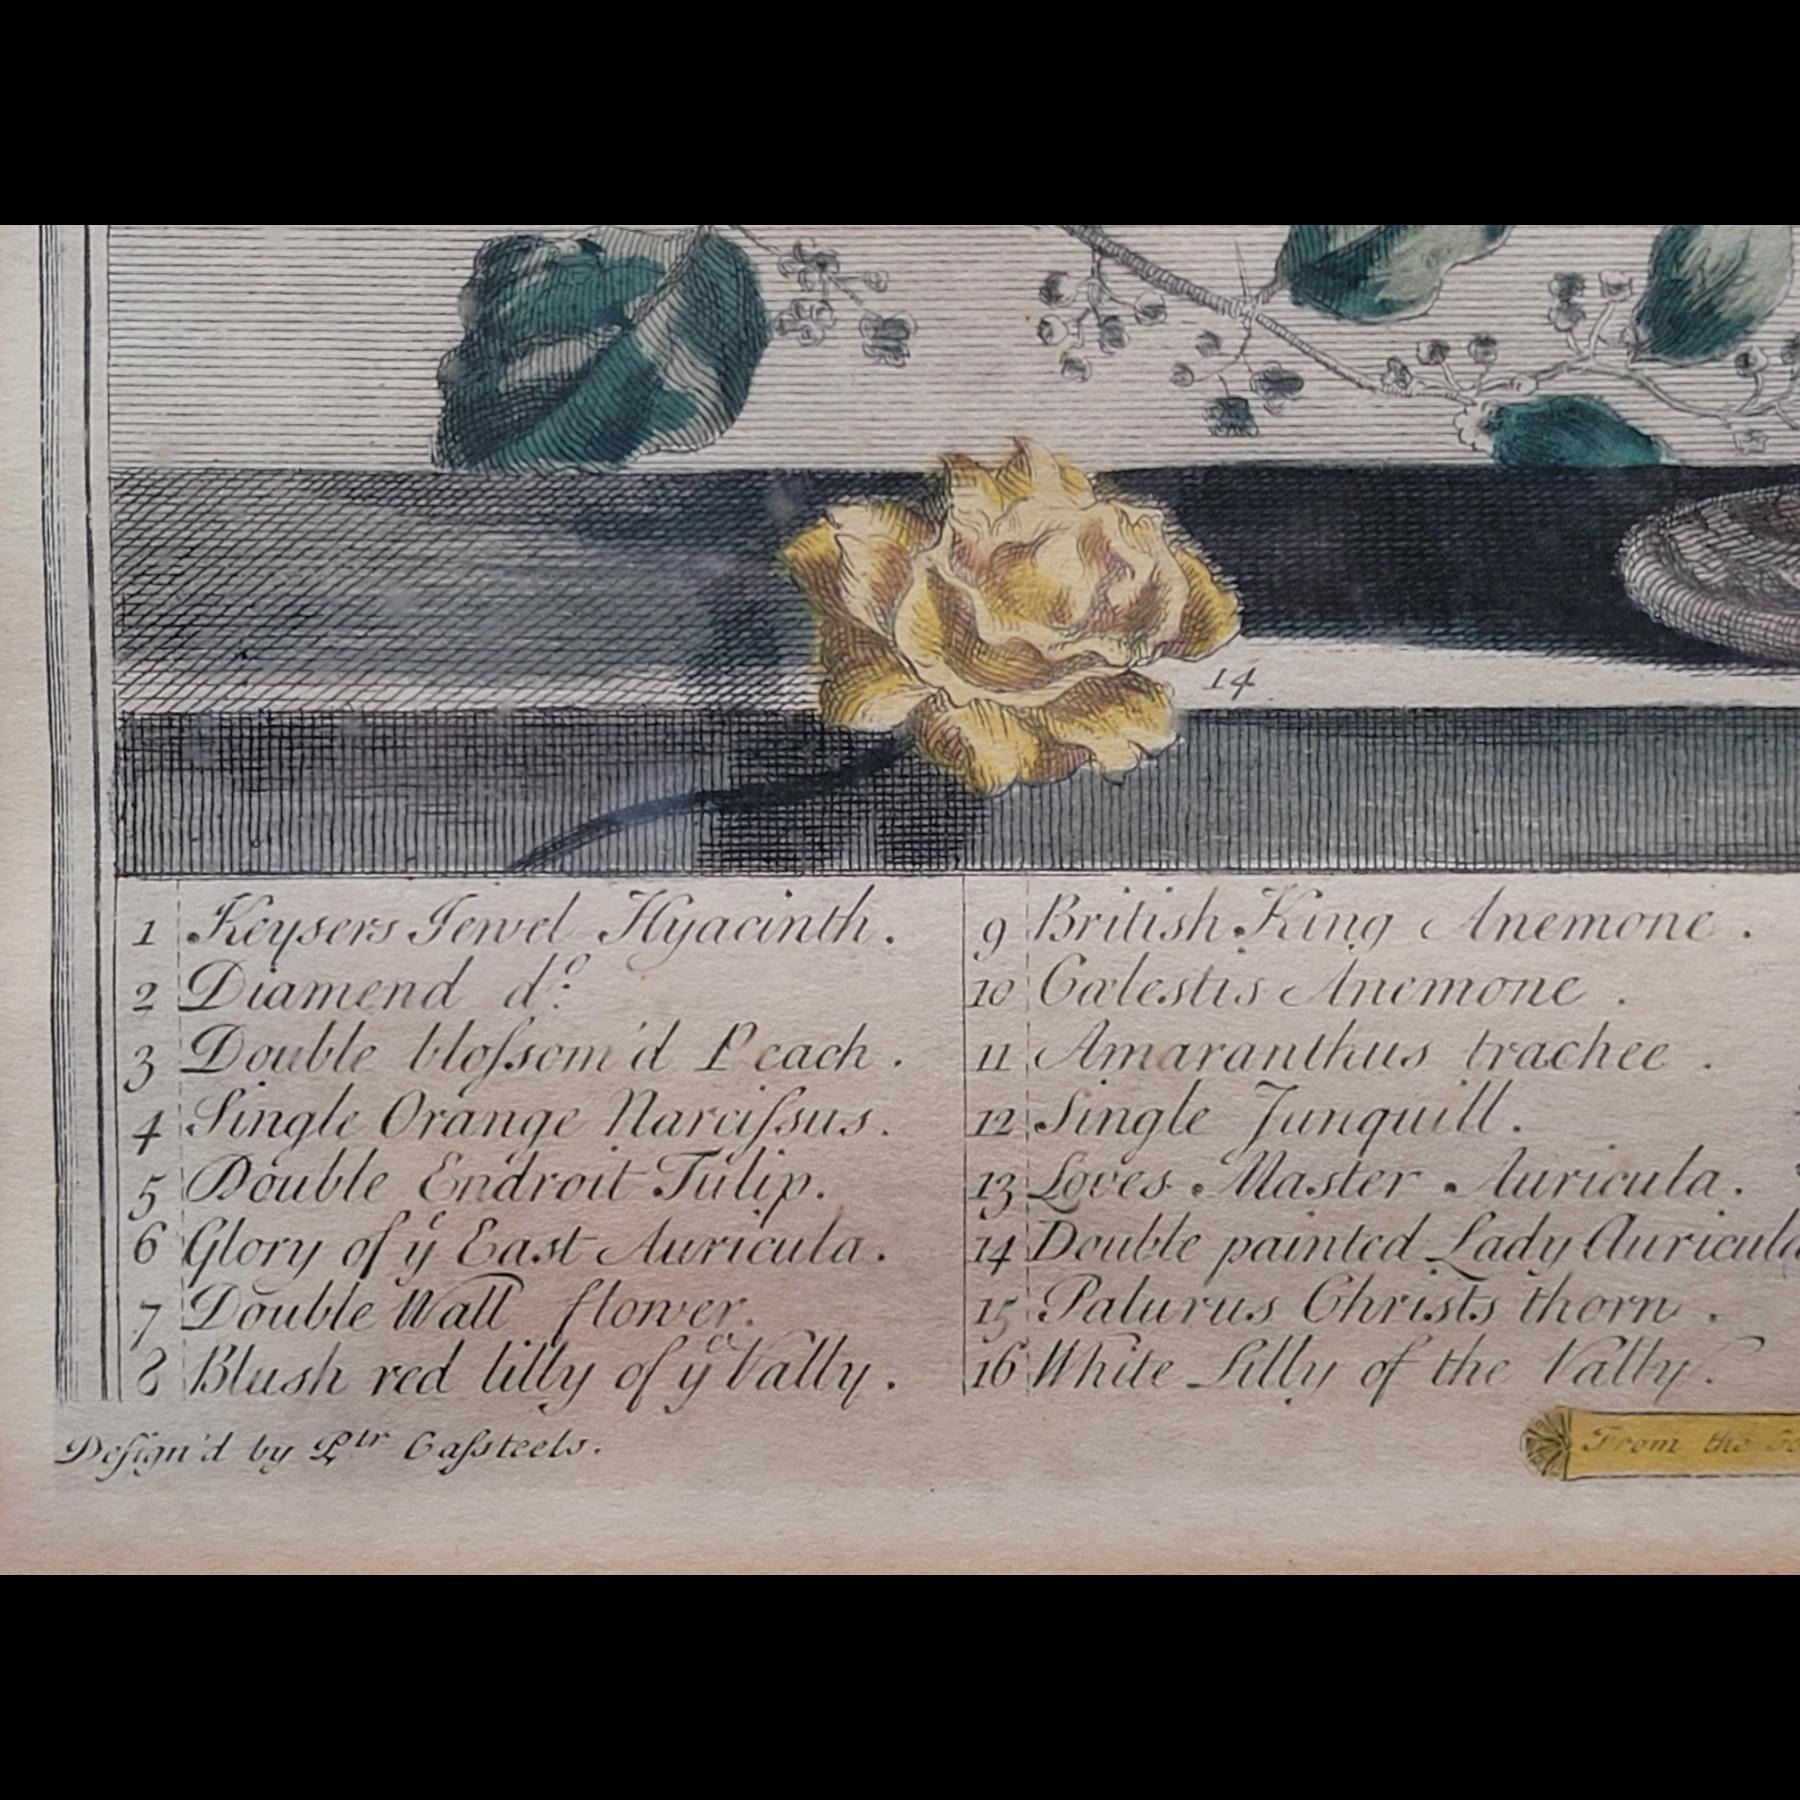 14
1 Keysers Jewel Hyacinth.
2 Diamend d.º
3 Double bloſsom'd Peach.
4 Single Orange Narciſsus.
5 Double Endroit Tulip.
6 Glory of yͤ East Auricula.
7 Double Wall flower.
8 Blush red lilly of yͤ Vally.
9 British King Anemone.
10 Cœlestis Anemone.
11 Amaranthus trachee.
12 Single Junquill.
13 Loves Master Auricula.
14 Double painted Lady Auricula
15 Palurus Christs thorn.
16 White Lilly of the Vally.
Deſign'd by Ptr Caſsteels.
From the